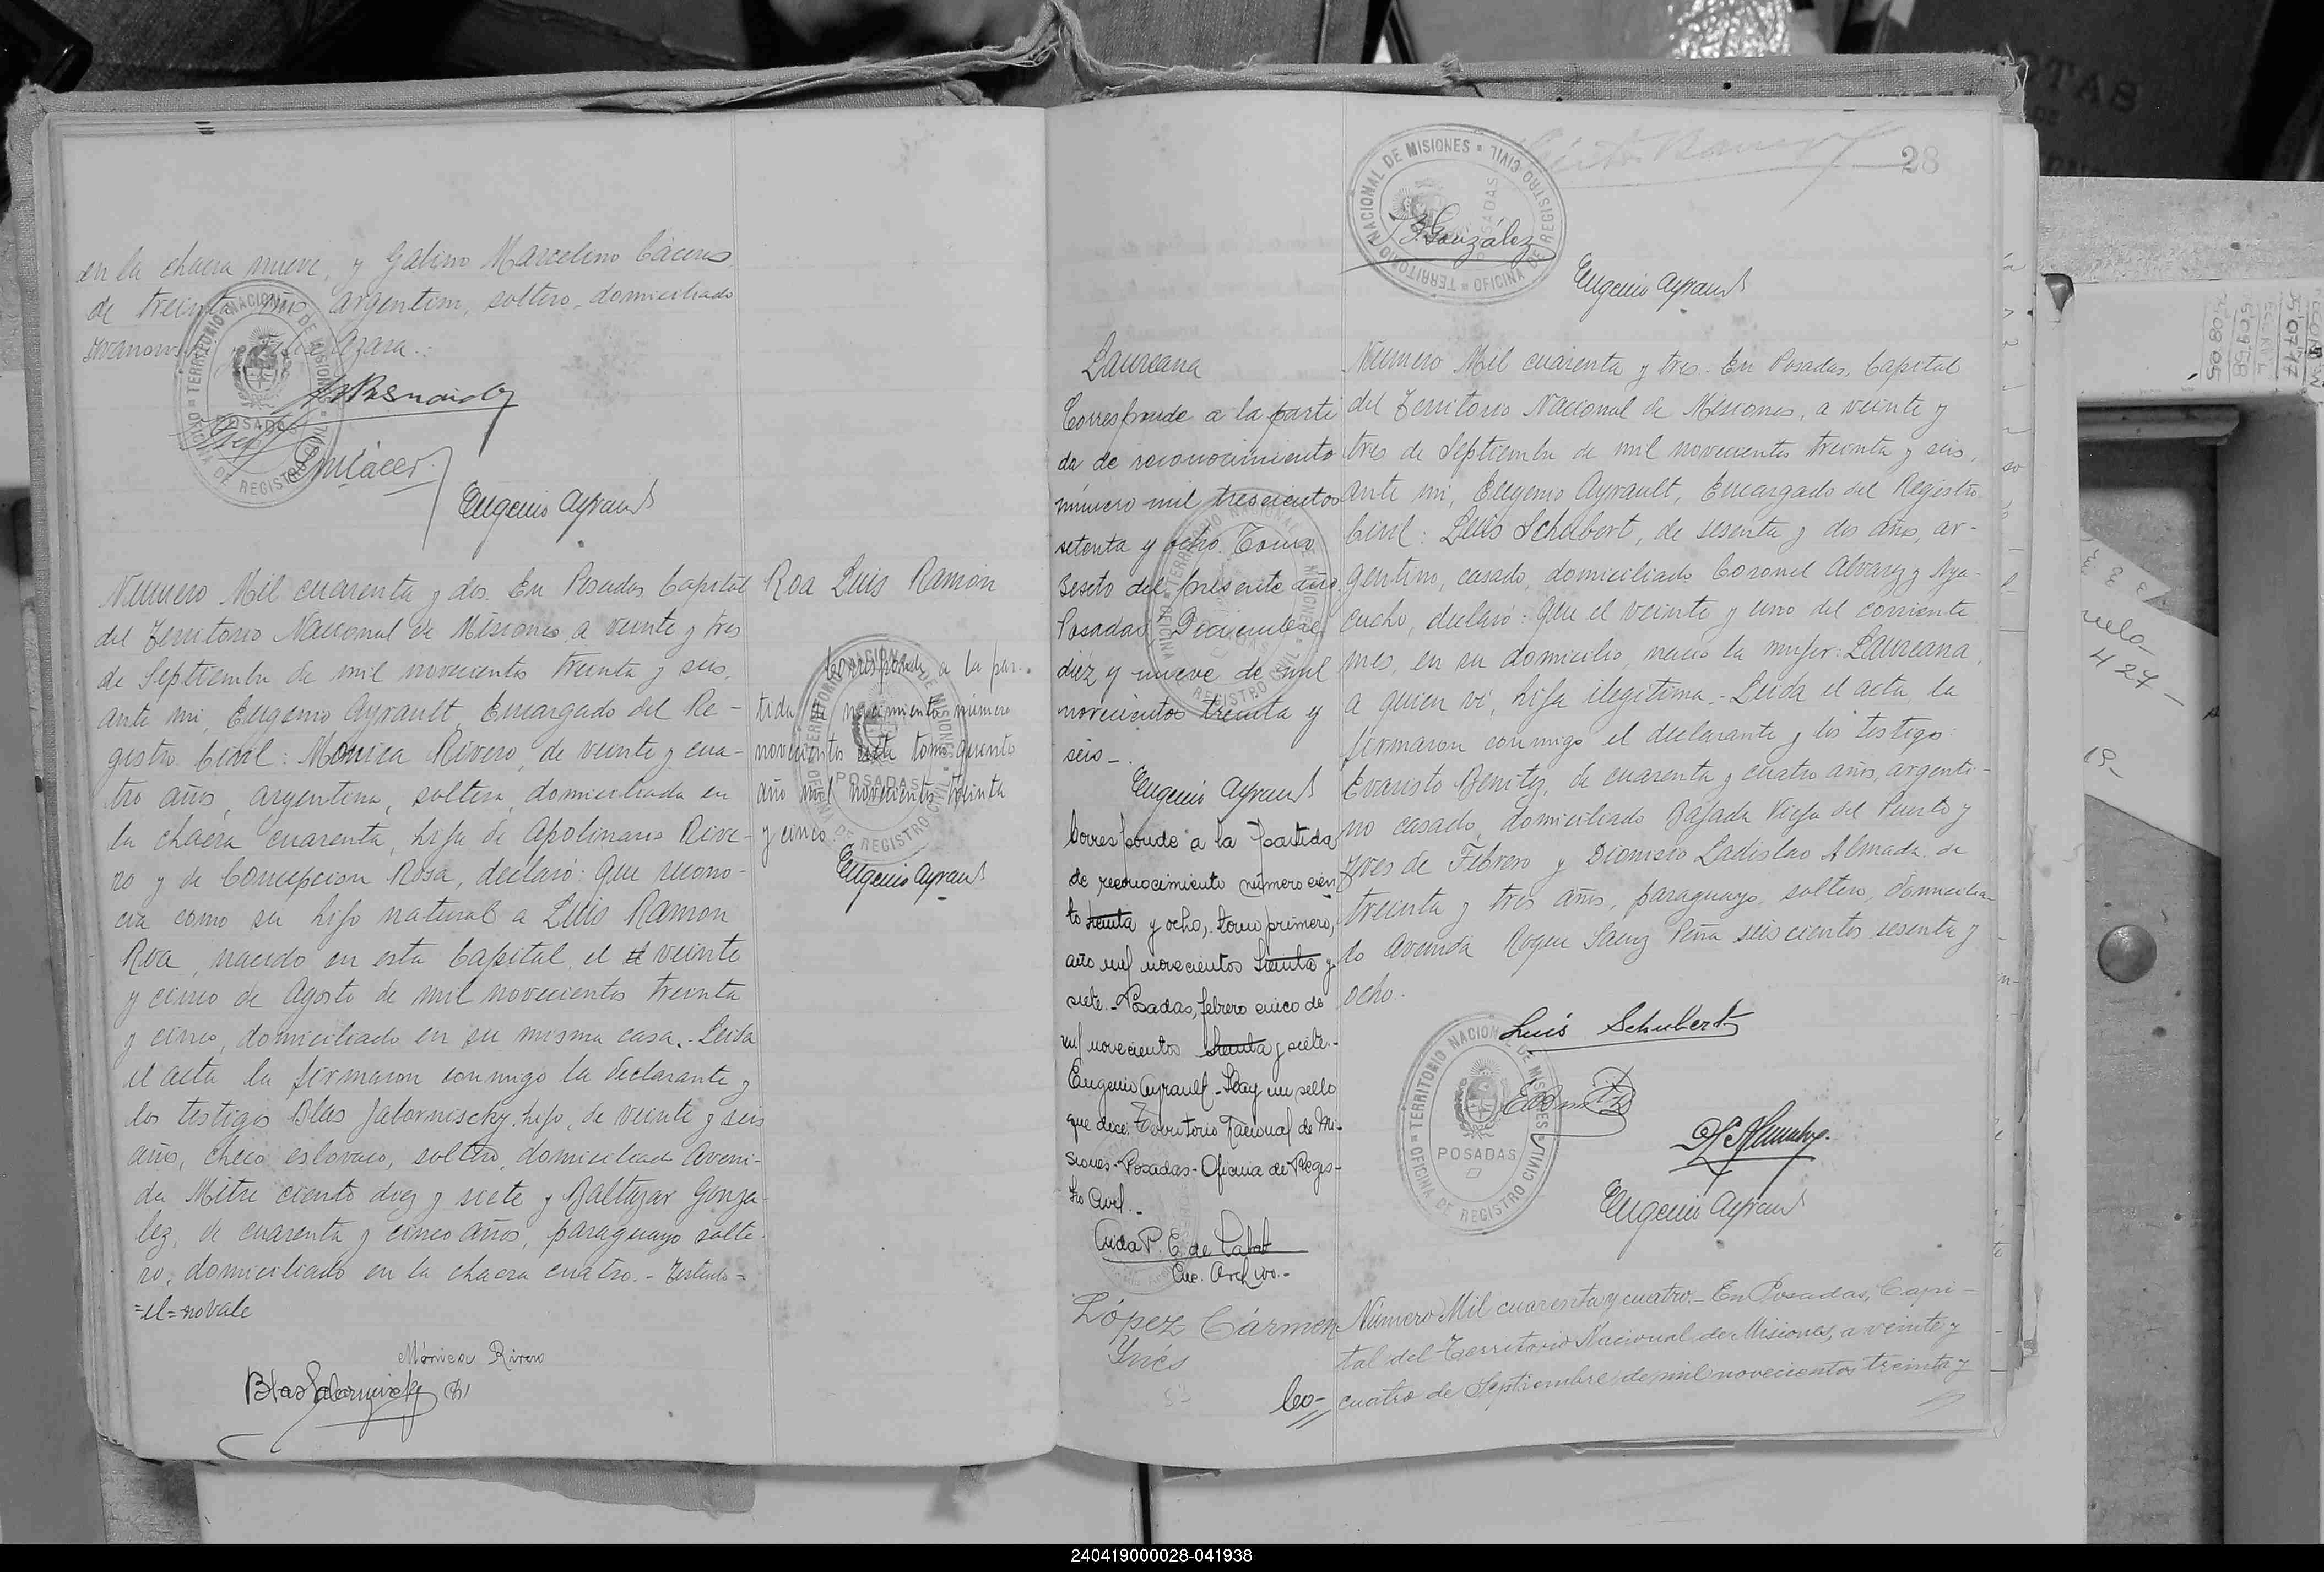 en la chacra nueve, y Galino Marcelino Cáceres
de treinta años, argentino, soltero, domiciliado
Azara.
Eugenio Ayrault
Número Mil cuarenta y dos. En Posadas, Capital
del Territorio Nacional de Misiones, a veinte y tres
de Septiembre de mil novecientos treinta y seis,
ante mi, Eugenio Ayrault, Encargado del Re-
gistro Civil: Mónica Rivero, de veinte y cua-
tro años, argentina, soltera, domiciliada en
la chacra cuarenta, hija de Apolinario Rive-
ro y de Concepcion Rosa, declaró: Que recono-
cia como su hijo natural a Luis Ramon
Roa, nacido en esta Capital, el el veinte
y cinco de Agosto de mil novecientos treinta
y cinco, domiciliado en su misma casa.- Leida
el acta la firmaron conmigo la declarante y
los testigos Blas Jaborniscky hijo, de veinte y seis
años, checo eslovaco, soltero, domiciliado Aveni-
da Mitre ciento diez y siete y Baltazar Gonza-
lez, de cuarenta y cinco años, paraguayo solte-
ro, domiciliado en la chacra cuatro.- Testado=
=el=no vale
Mónica Rivero
Blas Jaborniscky (h)
Roa Luis Ramón
Corresponde a la par-
tida de nacimiento número
novecientos siete tomo quinto
año mil novecientos treinta
y cinco
Eugenio Ayrault
TERRITORIO NACIONAL DE MISIONES
POSADAS
OFICINA DE REGISTRO CIVIL
28
B. González
Eugenio Ayrault
Laureana
Corresponde a la parti
da de reconocimiento
número mil trescientos
setenta y ocho. Tomo
Sexto del presente año.
Posadas, Diciembre
diez y nueve de mil
novecientos treinta y
seis-
Eugenio Ayrault
Corresponde a la partida
de reconocimiento número cien
to treinta y ocho, tomo primero,
año mil novecientos treinta y
siete.- Posadas, febrero cinco de
mil novecientos treinta y siete.-
Eugenio Ayrault- Hay un sello
que dice: Territorio Nacional de Mi-
siones- Posadas- Oficina de Regis-
tro Civil.-
Enc. Archivo.-
Número Mil cuarenta y tres. En Posadas, Capital
del Territorio Nacional de Misiones, a veinte y
tres de Septiembre de mil novecientos treinta y seis,
ante mi, Eugenio Ayrault, Encargado del Registro
Civil: Luis Schubert, de sesenta y dos años, ar-
gentino, casado, domiciliado Coronel Alvarez y Aya-
cucho, declaró: Que el veinte y uno del corriente
mes, en su domicilio, nació la mujer: Laureana,
a quien vi, hija ilegitima.- Leida el acta la
firmaron conmigo el declarante y los testigos:
Evaristo Benitez, de cuarenta y cuatro años, argenti-
no casado, domiciliado Bajada Vieja del Puerto y
Tres de Febrero y Dionisio Ladislao Almada de
treinta y tres años, paraguayo, soltero, domicilia-
do Avenida Roque Saenz Peña seiscientos sesenta y
ocho.-
Luis Schubert
TERRITORIO NACIONAL DE MISIONES
POSADAS
OFICINA DE REGISTRO CIVIL
Eugenio Ayrault
López Cármen
Ynés
Número Mil cuarenta y cuatro.- En Posadas, Capi-
tal del Territorio Nacional de Misiones, a veinte y
cuatro de Septiembre de mil novecientos treinta y
240419000028-041938